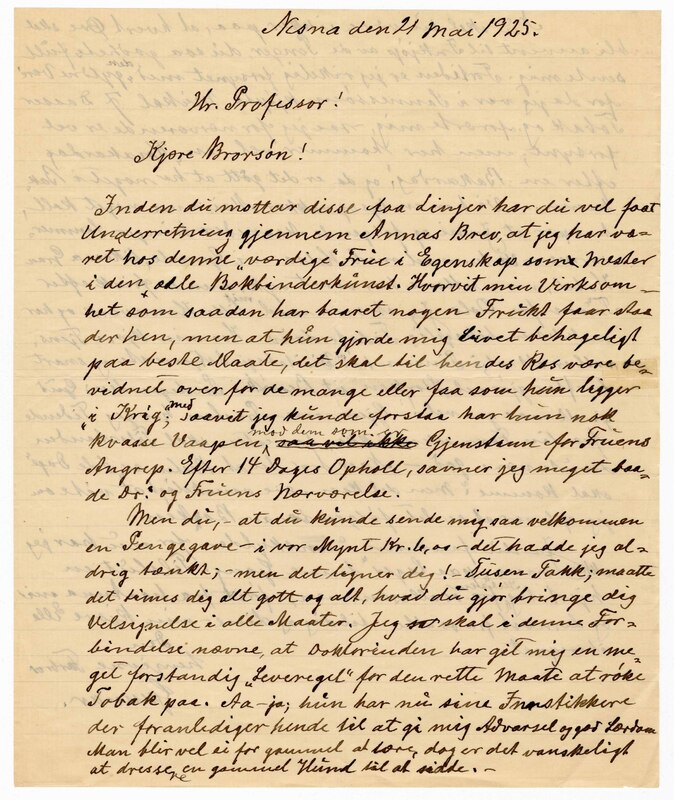 Nesna den 21 Mai 1925.
Hr. Professor!
Kjære Brorsön!
Inden du mottar disse faa Linjer har du vel faat
Underretning gjennem Annas Brev, at jeg har væ-
ret hos denne "værdige" Frue i Egenskap som Mester
i den ædle Bokbinderkunst. Hvorvit min Virksom-
het som saadan har baaret nogen Frukt faar staa
derhen, men at hun gjorde mig Livet behageligt
paa beste Maate, det skal til hendes Ros være be-
vidnet over for de mange eller faa som hun ligger
"i Krig" med, saavit jeg kunde forstaa har hun nok
kvasse Vaapen mod dem som er saa vel ikke Gjenstann for Fruens
Angrep. Efter 14 Dages Opholl, savner jeg meget baa-
de Dr. og Fruens Nærværelse.
Men du, - at du kunde sende mig saa velkommen
en Pengegave - i vor Mynt Kr. 6,00 - det hadde jeg al-
drig tænkt; - men det ligner dig! - Tusen Takk; maatte
det times dig alt gott og alt, hvad du gjör bringe dig
Velsignelse i alle Maater. Jeg skal i denne For-
bindelse nævne, at Doktorinden har git mig en me-
get forstandig "Leveregel" for den rette Maate at röke
Tobak paa. Aa-ja; hun har nu sine Innstikkere
der foranlediger hende til at gi mig Advarsel og god Lærdom
Man blir vel ei for gammel at lære, dog er det vanskeligt
at dressere en gammel Hund til at sidde. -